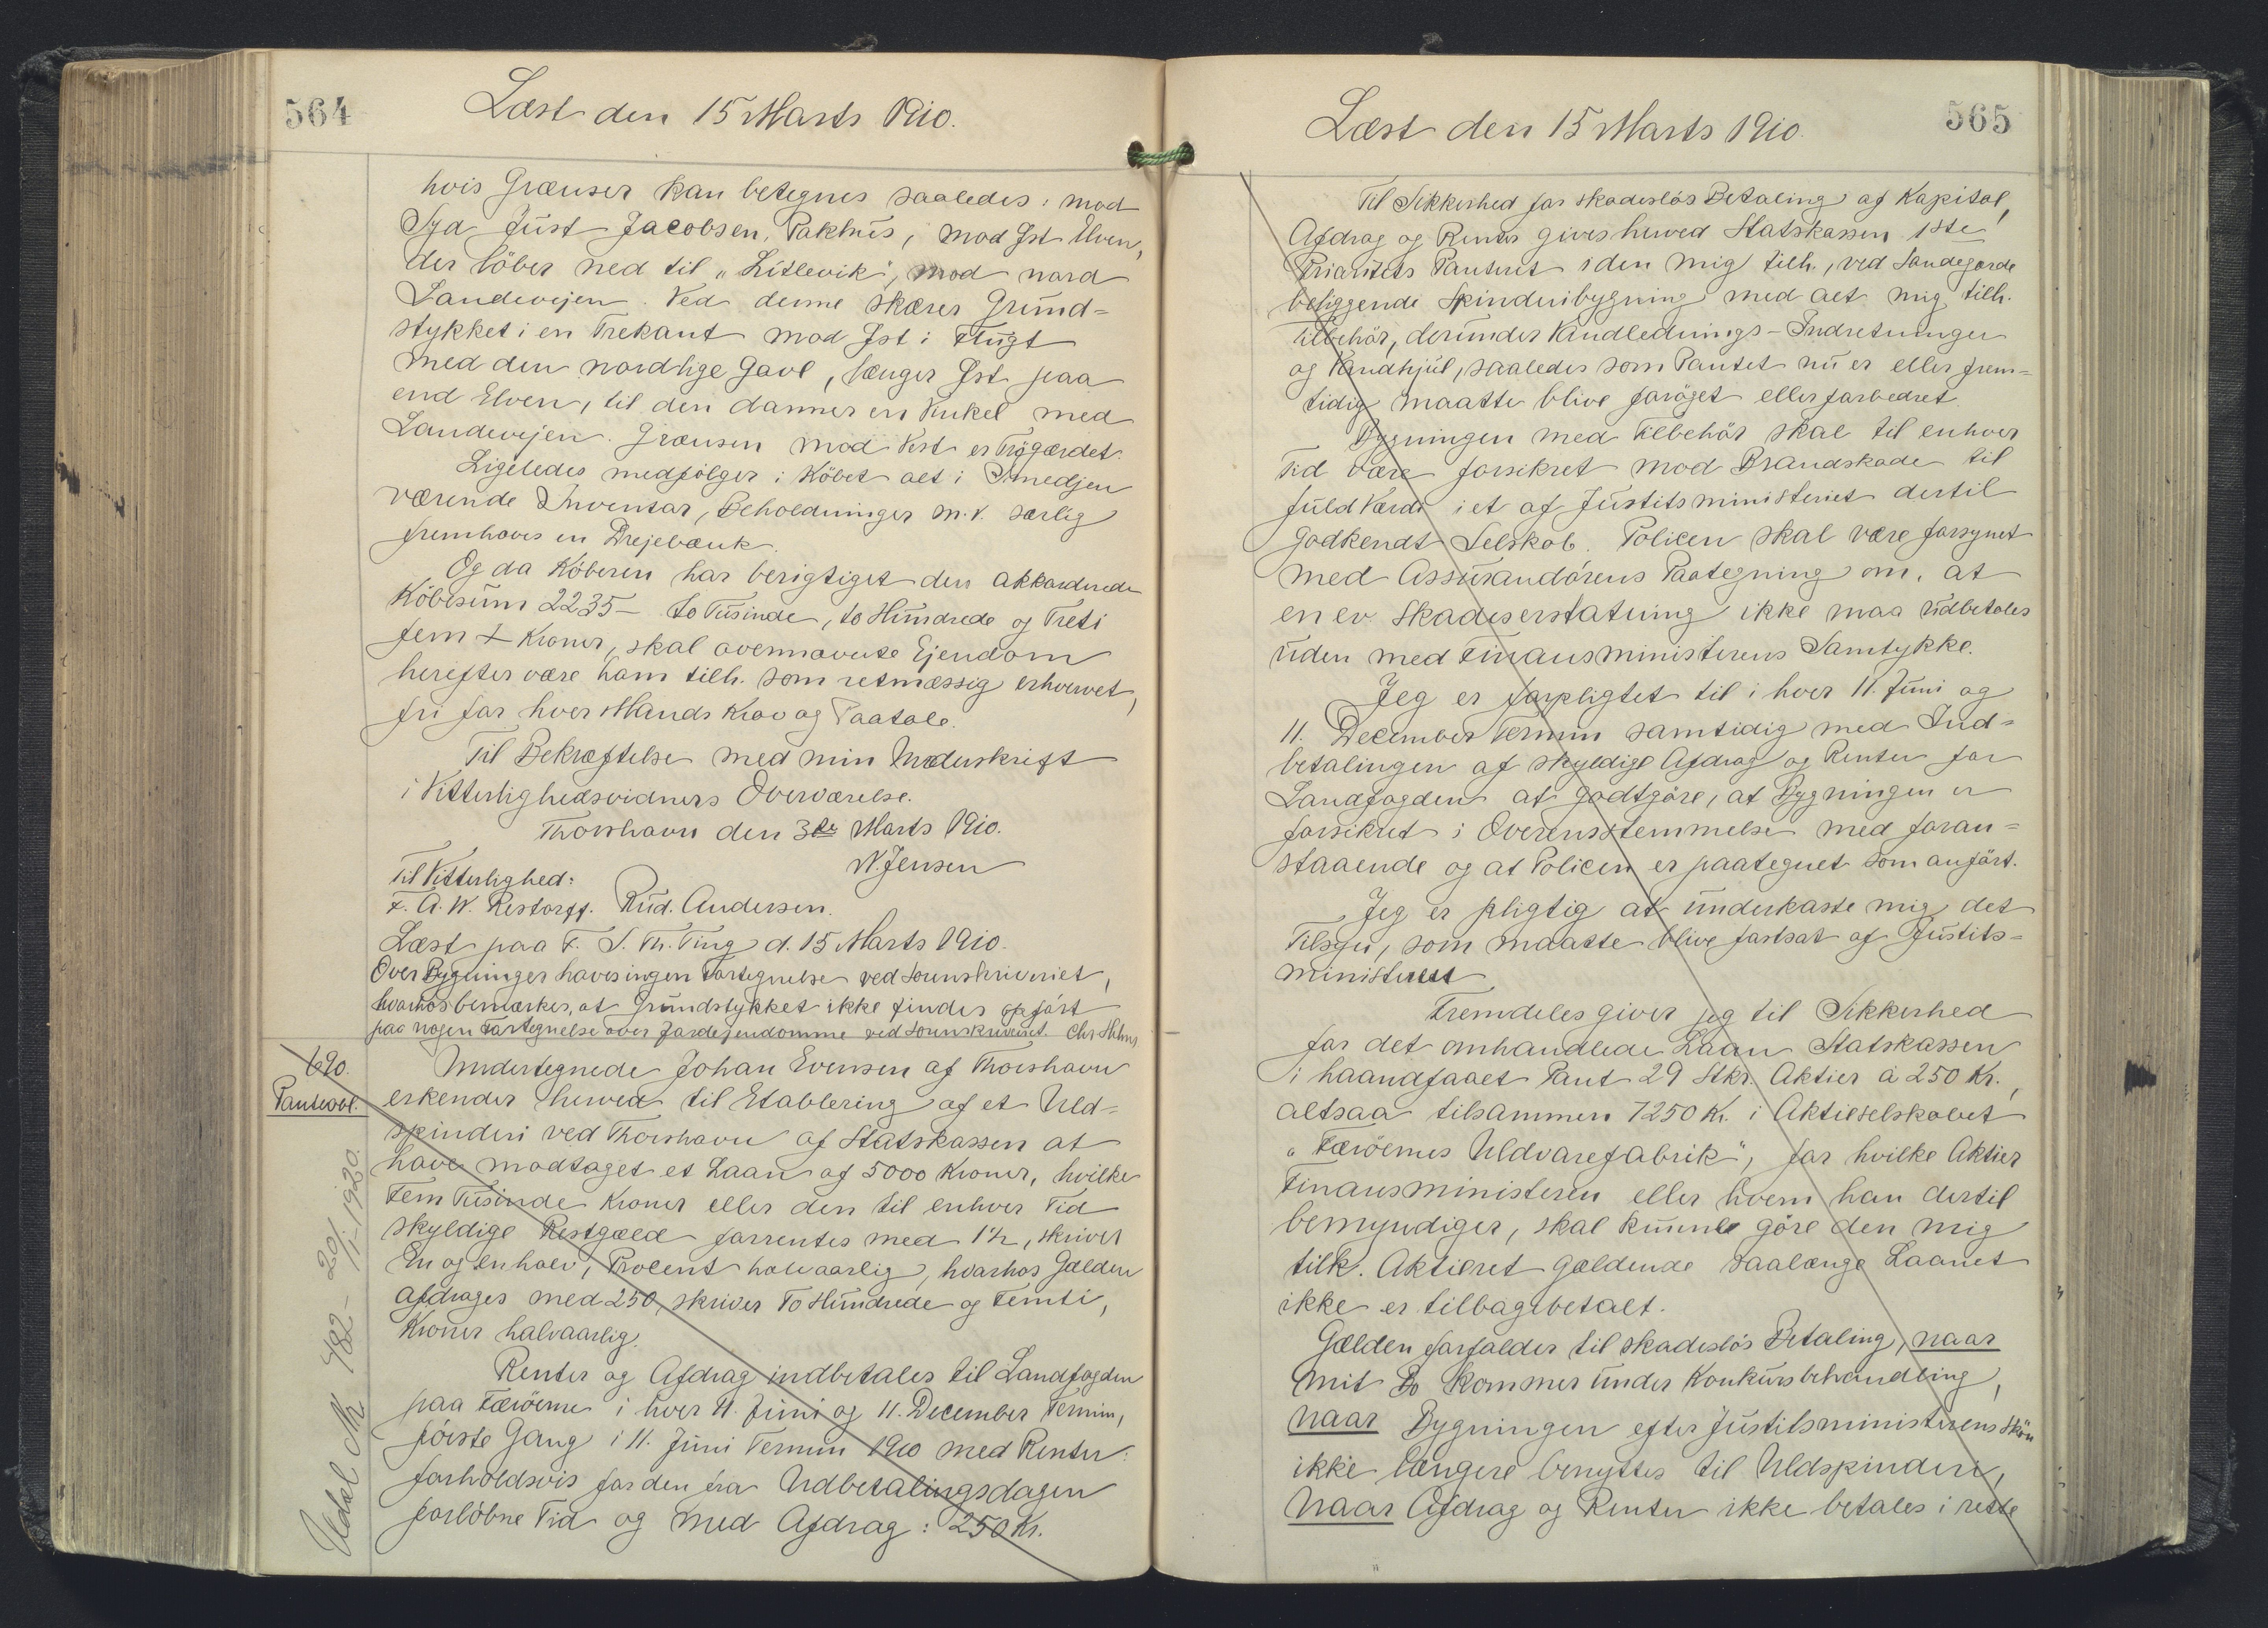 564
Læst den 15 Marts 1910.
hvis Grænser kan betegnes saaledes: mod
Syd Just Jacobsen, Pakhus, mod Øst Elven,
der löber ned til „Litlevik", mod nord
Landevejen. Ved denne skærer Grund=
stykket i en Trekant mod Øst i Flugt
med den nordlige Gavl, længer Øst paa
end Elven, til den danner en Vinkel med
Landevejen. Grænsen mod Vest er Trögærdet.
Ligeledes medfölger i Köbet alt i Smedjen
værende Inventar, Beholdninger m. v. særlig
fremhæves en Drejebænk.
Og da Köberen har berigtiget den akkorderede
Köbesum 2235 – to Tusinde, to Hundrede og Treti
fem + Kroner, skal ovennævnte Ejendom
herefter være ham tilh. som retmæssig erhvervet,
fri for hver Mands Krav og Paatale.
Til Bekræftelse med min Underskrift
i Vitterlighedsvidners Overværelse.
Thorshavn den 3die Marts 1910.
N. Jensen
Til Vitterlighed:
F. A. W. Restorff. Rud. Andersen.
Læst paa F. S. Th. Ting d. 15 Marts 1910.
Over Bygninger haves ingen Fortegnelse ved Sorenskriveriet,
hvorhos bemærkes, at Grundstykket ikke findes opfört
paa nogen Fortegnelse over Jordejendomme ved Sorenskriveriet. Chr
690.
Panteobl.
Undertegnede Johan Evensen af Thorshavn
erkender herved til Etablering af et Uld=
spinderi ved Thorshavn af Statskassen at
have modtaget et Laan af 5000 Kroner, hvilke
Fem Tusinde Kroner eller den til enhver Tid
skyldige Restgæld forrentes med 1½, skriver
En og en halv, Procent halvaarlig, hvorhos Gælden
afdrages med 250, skriver To Hundrede og Femti,
Kroner halvaarlig.
Renter og Afdrag indbetales til Landfogden
paa Færöerne i hver 11. Juni og 11. December Termin,
förste Gang i 11. Juni Termin 1910 med Renter
forholdsvis for den fra Udbetalingsdagen
forlöbne Tid og med Afdrag: 250 Kr.
782 – 20/1-1920.
565
Læst den 15 Marts 1910.
Til Sikkerhed for skadeslös Betaling af Kapital,
Afdrag og Renter gives herved Statskassen 1ste
Prioritets Panteret i den mig tilh., ved Sandegærde
beliggende Spinderibygning med alt mig tilh.
Tilbehör, derunder Vandlednings-Indretninger
og Vandhjul, saaledes som Pantet nu er eller frem=
tidig maatte blive foröget eller forbedret.
Bygningen med Tilbehör skal til enhver
Tid være forsikret mod Brandskade til
fuld Værdi i et af Justitsministeriet dertil
godkendt Selskab. Policen skal være forsynet
med Assurandörens Paategning om, at
en ev. Skadeserstatning ikke maa udbetales
uden med Finansministerens Samtykke.
Jeg er forpligtet til i hver 11. Juni og
11. December Termin samtidig med Ind=
betalingen af skyldige Afdrag og Renter for
Landfogden at godtgöre, at Bygningen er
forsikret i Overensstemmelse med foran=
staaende og at Policen er paategnet som anfört.
Jeg er pligtig at underkaste mig det
Tilsyn, som maatte blive fastsat af Justits=
ministeriet
Fremdeles giver jeg til Sikkerhed
for det omhandlede Laan Statskassen
i haandfaaet Pant 29 Stkr. Aktier á 250 Kr.,
altsaa tilsammen 7250 Kr. i Aktieselskabet
„Færöernes Uldvarefabrik", for hvilke Aktier
Finansministeren eller hvem han dertil
bemyndiger, skal kunne göre den mig
tilk. Aktieret gældende saalænge Laanet
ikke er tilbagebetalt.
Gælden forfalder til skadeslös Betaling, naar
mit Bo kommer under Konkursbehandling,
naar Bygningen efter Justitsministerens Skön
ikke længere benyttes til Uldspinderi,
naar Afdrag og Renter ikke betales i rette